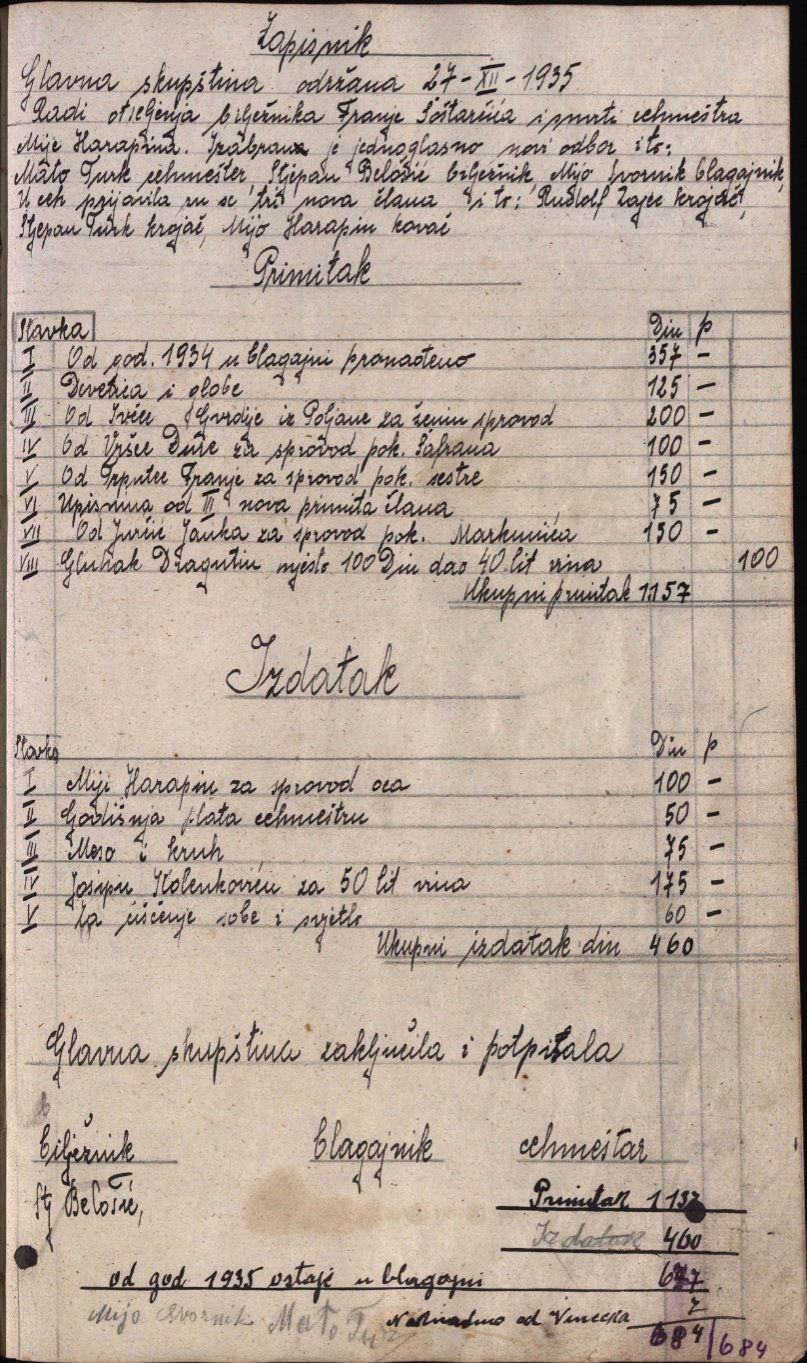 Zapisnik
Glavna skupština održana 27-XII-1935
Radi otseljenja bilježnika Franje Šoštarića i smrti cehmeštra
Mije Harapina. Izabran je jednoglasno novi odbor i to:
Mato Turk cehmešter, Stjepan Belošić bilježnik, Mijo Gvornik blagajnik,
U ceh prijavila su se tri nova člana i to: Rudolf Zajec krojač,
Stjepan Turk krojač, Mijo Harapin kovač
Primitak
Stavka Din p
I Od god. 1934 u blagajni pronađeno 357 –
II Devetnica i globe 125 –
III Od Ivće Gvrdije iz Poljane za ženin sprovod 200 –
IV Od Vršec Đure za sprovod pok. Šafrana 100 –
V Od Trputec Franje za sprovod pok. sestre 150 –
VI Upisnina od III nova primita člana 75 –
VII Od Jurčić Janka za sprovod pok. Markunića 150 –
VIII Gluhak Dragutin mjesto 100 Din dao 40 lit vina 100
Ukupni primitak 1157
Izdatak
Stavka Din p
I Miji Harapin za sprovod oca 100 –
II Godišnja plata cehmeštru 50 –
III Meso i kruh 75 –
IV Josipu Kolenkoviću za 50 lit vina 175 –
V Za čišćenje sobe i svjetlo 60 –
Ukupni izdatak din 460
Glavna skupština zaključila i potpisala
bilježnik blagajnik cehmeštar
Stj Belošić, Primitak 1137
Izdatak 460
od god 1935 ostaje u blagajni 677
7
Mijo Gvornik Mato Turk Naknadno od 684/684